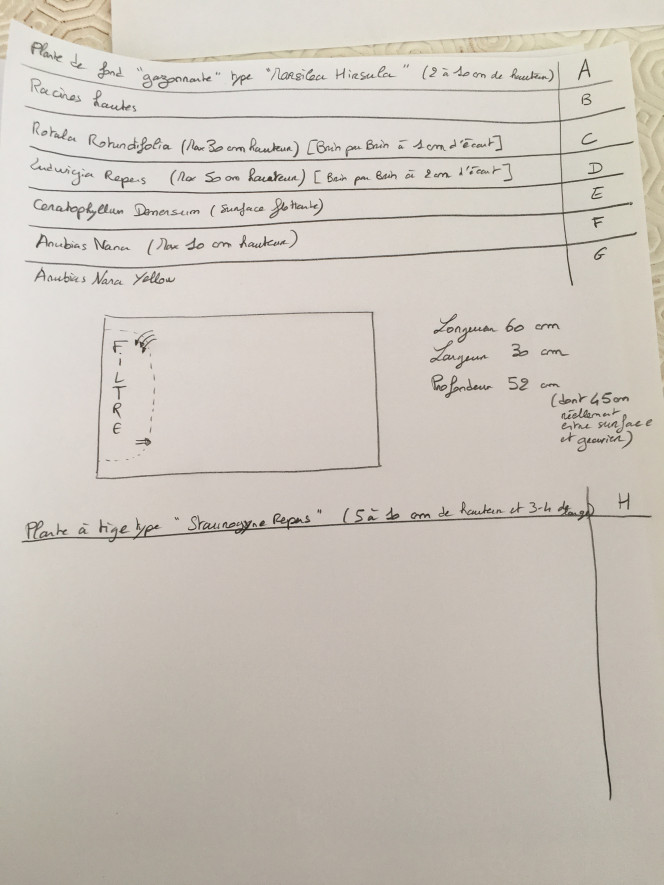 Plante de fond "gazonnante" type "Marsilea Hirsula" (2 à 10 cm de hauteur) A
Racines hautes B
Rotala Rotundifolia (Max 30 cm hauteur) [Brin par Brin à 1 cm d'écart] C
Ludwigia Repens (Max 50 cm hauteur) [Brin par Brin à 2 cm d'écart] D
Ceratophyllum Demersum (Surface flottante) E
Anubias Nana (Max 10 cm hauteur) F
Anubias Nana Yellow G
FILTRE
Longueur 60 cm
Largeur 30 cm
Profondeur 52 cm
(dont 45 cm
réellement
entre surface
et gravier)
Plante à tige type "Staurogyne Repens" (5 à 10 cm de hauteur et 3-4 de large) H